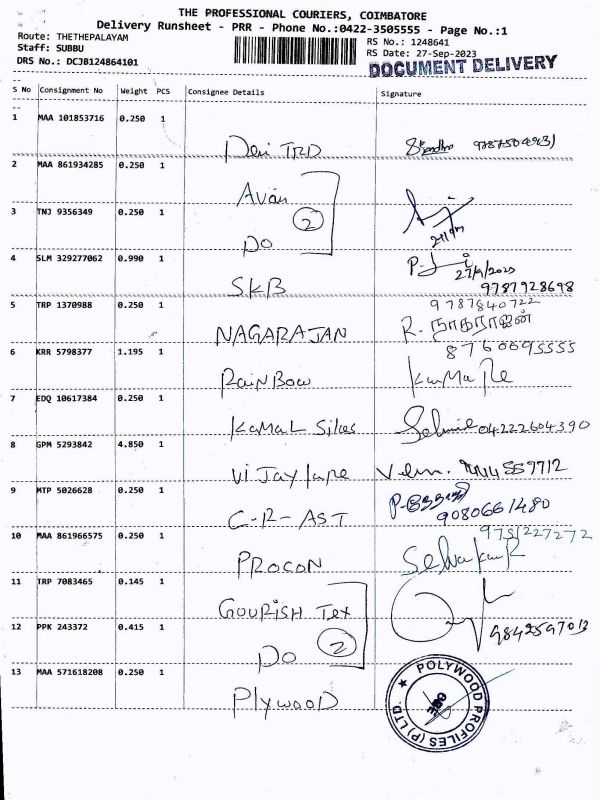 THE PROFESSIONAL COURIERS, COIMBATORE
Delivery Runsheet - PRR - Phone No.:0422-3505555 - Page No.:1
Route: THETHEPALAYAM
RS No.: 1248641
Staff: SUBBU
RS Date: 27-Sep-2023
DRS No.: DCJB124864101
DOCUMENT DELIVERY
S No Consignment No Weight PCS Consignee Details Signature
1 MAA 101853716 0.250 1
Devi TRD
2 MAA 861934285 0.250 1
Avan
3 TNJ 9356349 0.250 1
2
DO
4 SLM 329277062 0.990 1
27/9/2023
SKB 9787928698
5 TRP 1370988 0.250 1
9787840722
NAGARAJAN R. நாகராஜன்
6 KRR 5798377 1.195 1
8760695555
RainBow
7 EDQ 10617384 0.250 1
KaMaL Silks 04222604390
8 GPM 5293842 4.850 1
Vijay
9 MTP 5026628 0.250 1
G-R-AST 9080661480
10 MAA 861966575 0.250 1
9751227272
PROCON
11 TRP 7083465 0.145 1
GOURISH Tex
12 PPK 243372 0.415 1
9842597013
DO 2
13 MAA 571618208 0.250 1
PlywOOD
POLYWOOD PROFILES (P) LTD.